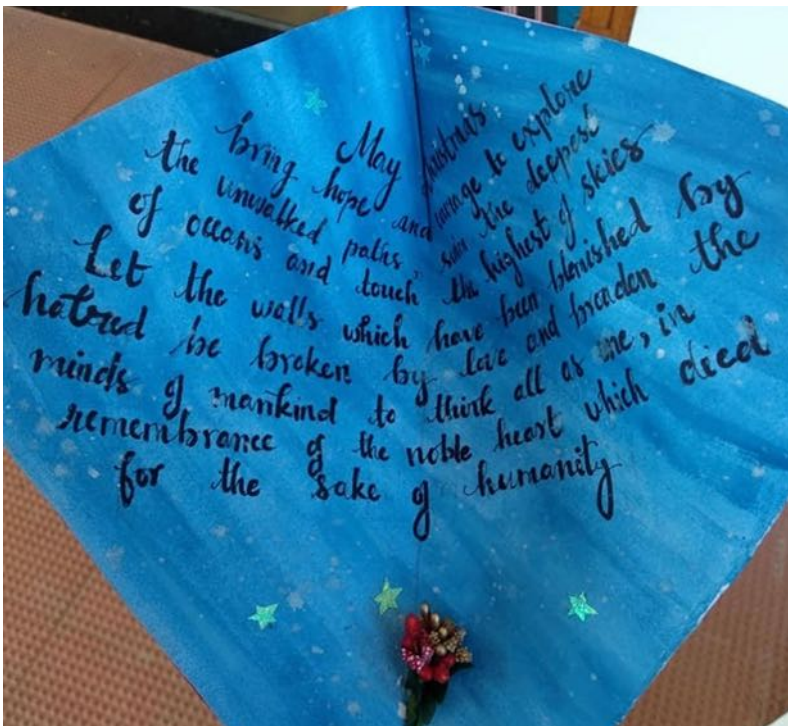 May Christmas
bring hope and courage to explore
the unwalked paths, swim the deepest
of oceans and touch the highest of skies
Let the walls which have been blemished by
hatred be broken by love and broaden the
minds of mankind to think all as one, in
remembrance of the noble heart which died
for the sake of humanity